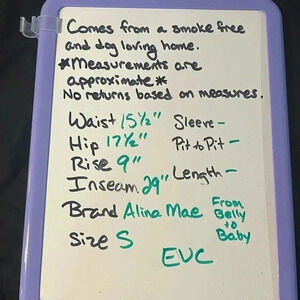 Comes from a smoke free
and dog loving home.
*Measurements are
approximate*
No returns based on measures.
Waist 15½" Sleeve -
Hip 17½" Pit to Pit -
Rise 9"
Inseam 29" Length -
Brand Alina Mae From Belly to Baby
Size S
EUC